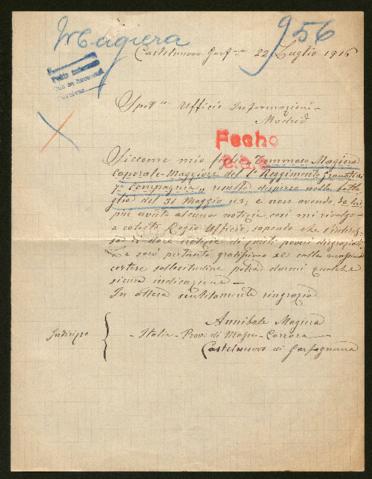 Magiera
956
Castelnuovo Garf.na 22 Luglio 1916
Spett. Ufficio Informazioni
Madrid
Fecho
Siccome mio figlio Tommaso Magiera
Caporale Maggiore del 1° Reggimento Granatieri
7a Compagnia, risulta disperso nella batta
glia del 31 Maggio u.s. e non avendo da lui
più avuta alcuna notizia, così mi rivolgo
a codesto Regio Ufficio, sapendo che
di dare notizie di questi poveri disgraziati
e sarò pertanto gratissimo se colla massima
cortese sollecitudine potrà darmi qualche
sicura indicazione.
In attesa sentitamente ringrazio
Annibale Magiera
Indirizzo
Italia - Prov. di Massa-Carrara
Castelnuovo di Garfagnana